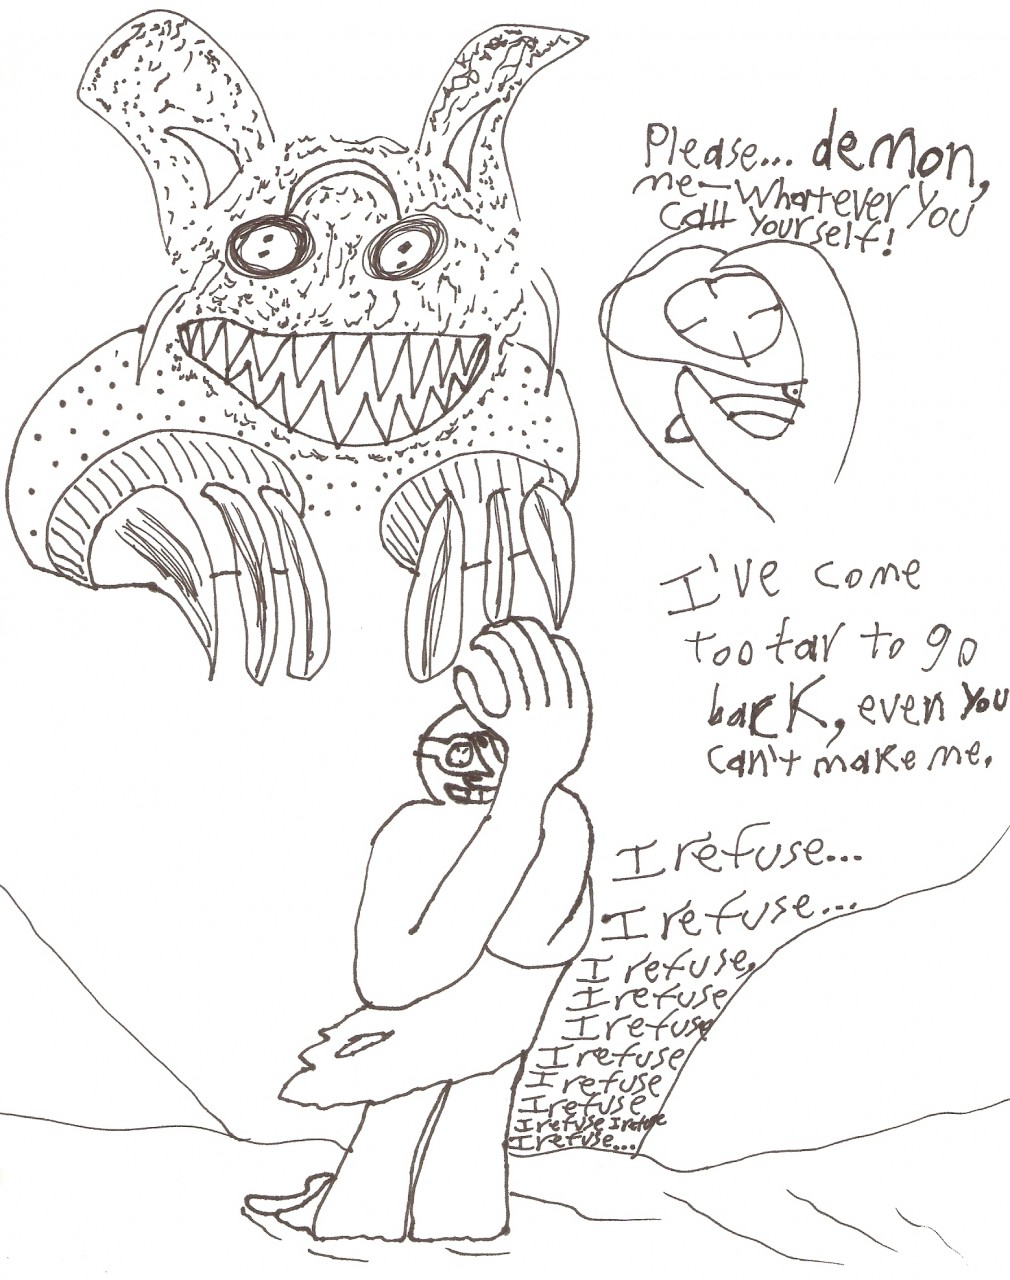 Please... demon,
me-whatever you
call yourself!
I've come
too far to go
back, even you
can't make me.
I refuse...
I refuse...
I refuse,
I refuse
I refuse
I refuse
I refuse
I refuse
I refuse I refuse
I refuse...